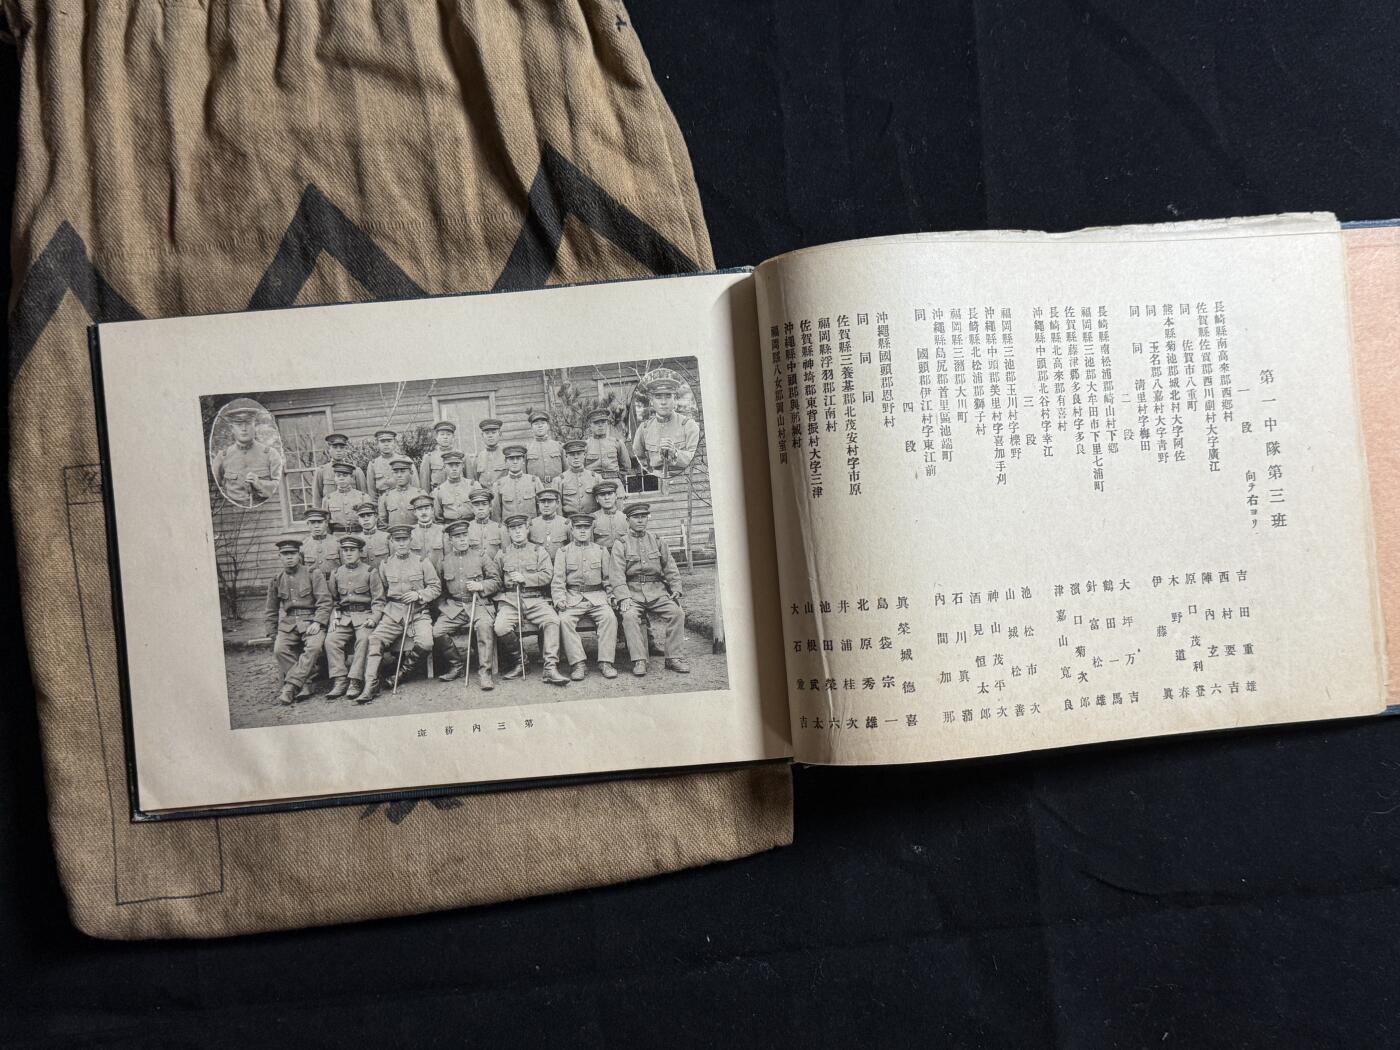 第三内務班
第一中隊第三班
向テ右ヨリ
一段
長崎縣南高來郡西郷村 吉田重雄
佐賀縣佐賀郡西川副村大字廣江 西村要吉
同 佐賀市八重町 陣内玄六
熊本縣菊池郡城北村大字阿佐 原口茂利登
同 玉名郡八嘉村大字青野 木野道春
同 同 清里村字梅田 伊藤眞
二段
長崎縣南松浦郡崎山村下郷 大坪万吉
福岡縣三池郡大牟田市下里七浦町 鶴田一馬
佐賀縣藤津郡多良村字多良 針富松雄
長崎縣北高來郡有喜村 濱口菊次郎
沖繩縣中頭郡北谷村字幸江 津嘉山寛良
三段
福岡縣三池郡玉川村字櫟野 池松市次
沖繩縣中頭郡美里村字喜加手刈 山城松善
長崎縣北松浦郡獅子村 神山茂平次
福岡縣三潴郡大川町 酒見恒太郎
沖繩縣島尻郡首里區池端町 石川眞蒲
同 國頭郡伊江村字東江前 内間加那
四段
沖繩縣國頭郡恩野村 眞榮城德喜
同 同 同 島袋宗一
佐賀縣三養基郡北茂安村字市原 北原秀雄
福岡縣浮羽郡江南村 井浦桂次
佐賀縣神埼郡東背振村大字三津 池田榮六
沖繩縣中頭郡與那城村 山根武太
福岡縣八女郡岡山村室岡 大石愛吉